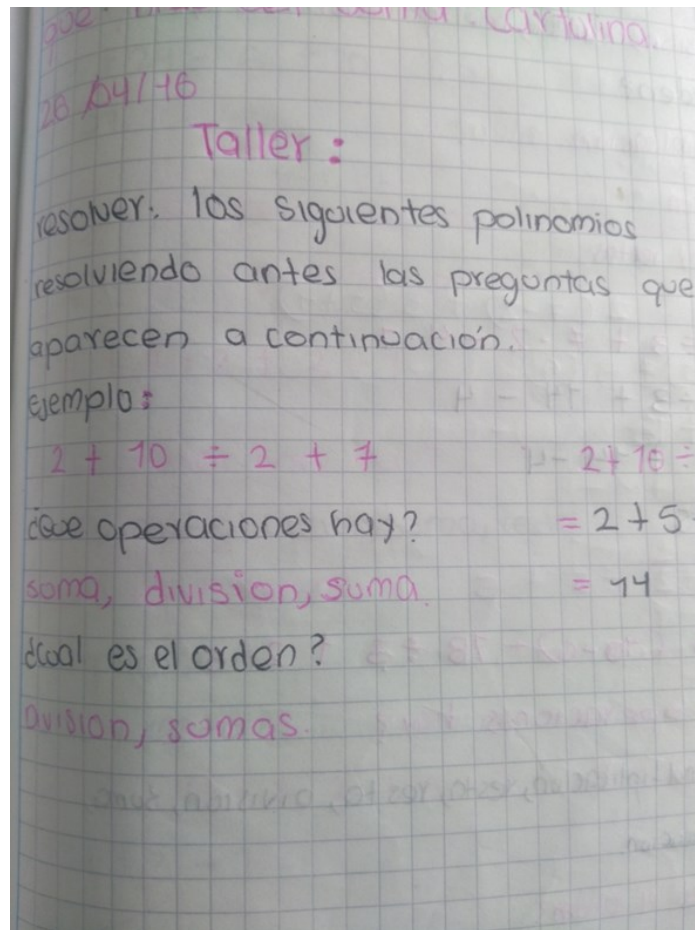 que Cartulina.
26/04/16
Taller:
resolver: los siguientes polinomios
resolviendo antes las preguntas que
aparecen a continuación.
Ejemplo:
2 + 10 ÷ 2 + 7 2 + 10 ÷
¿Que operaciones hay? = 2 + 5
suma, division, suma. = 14
¿cual es el orden?
division, sumas.